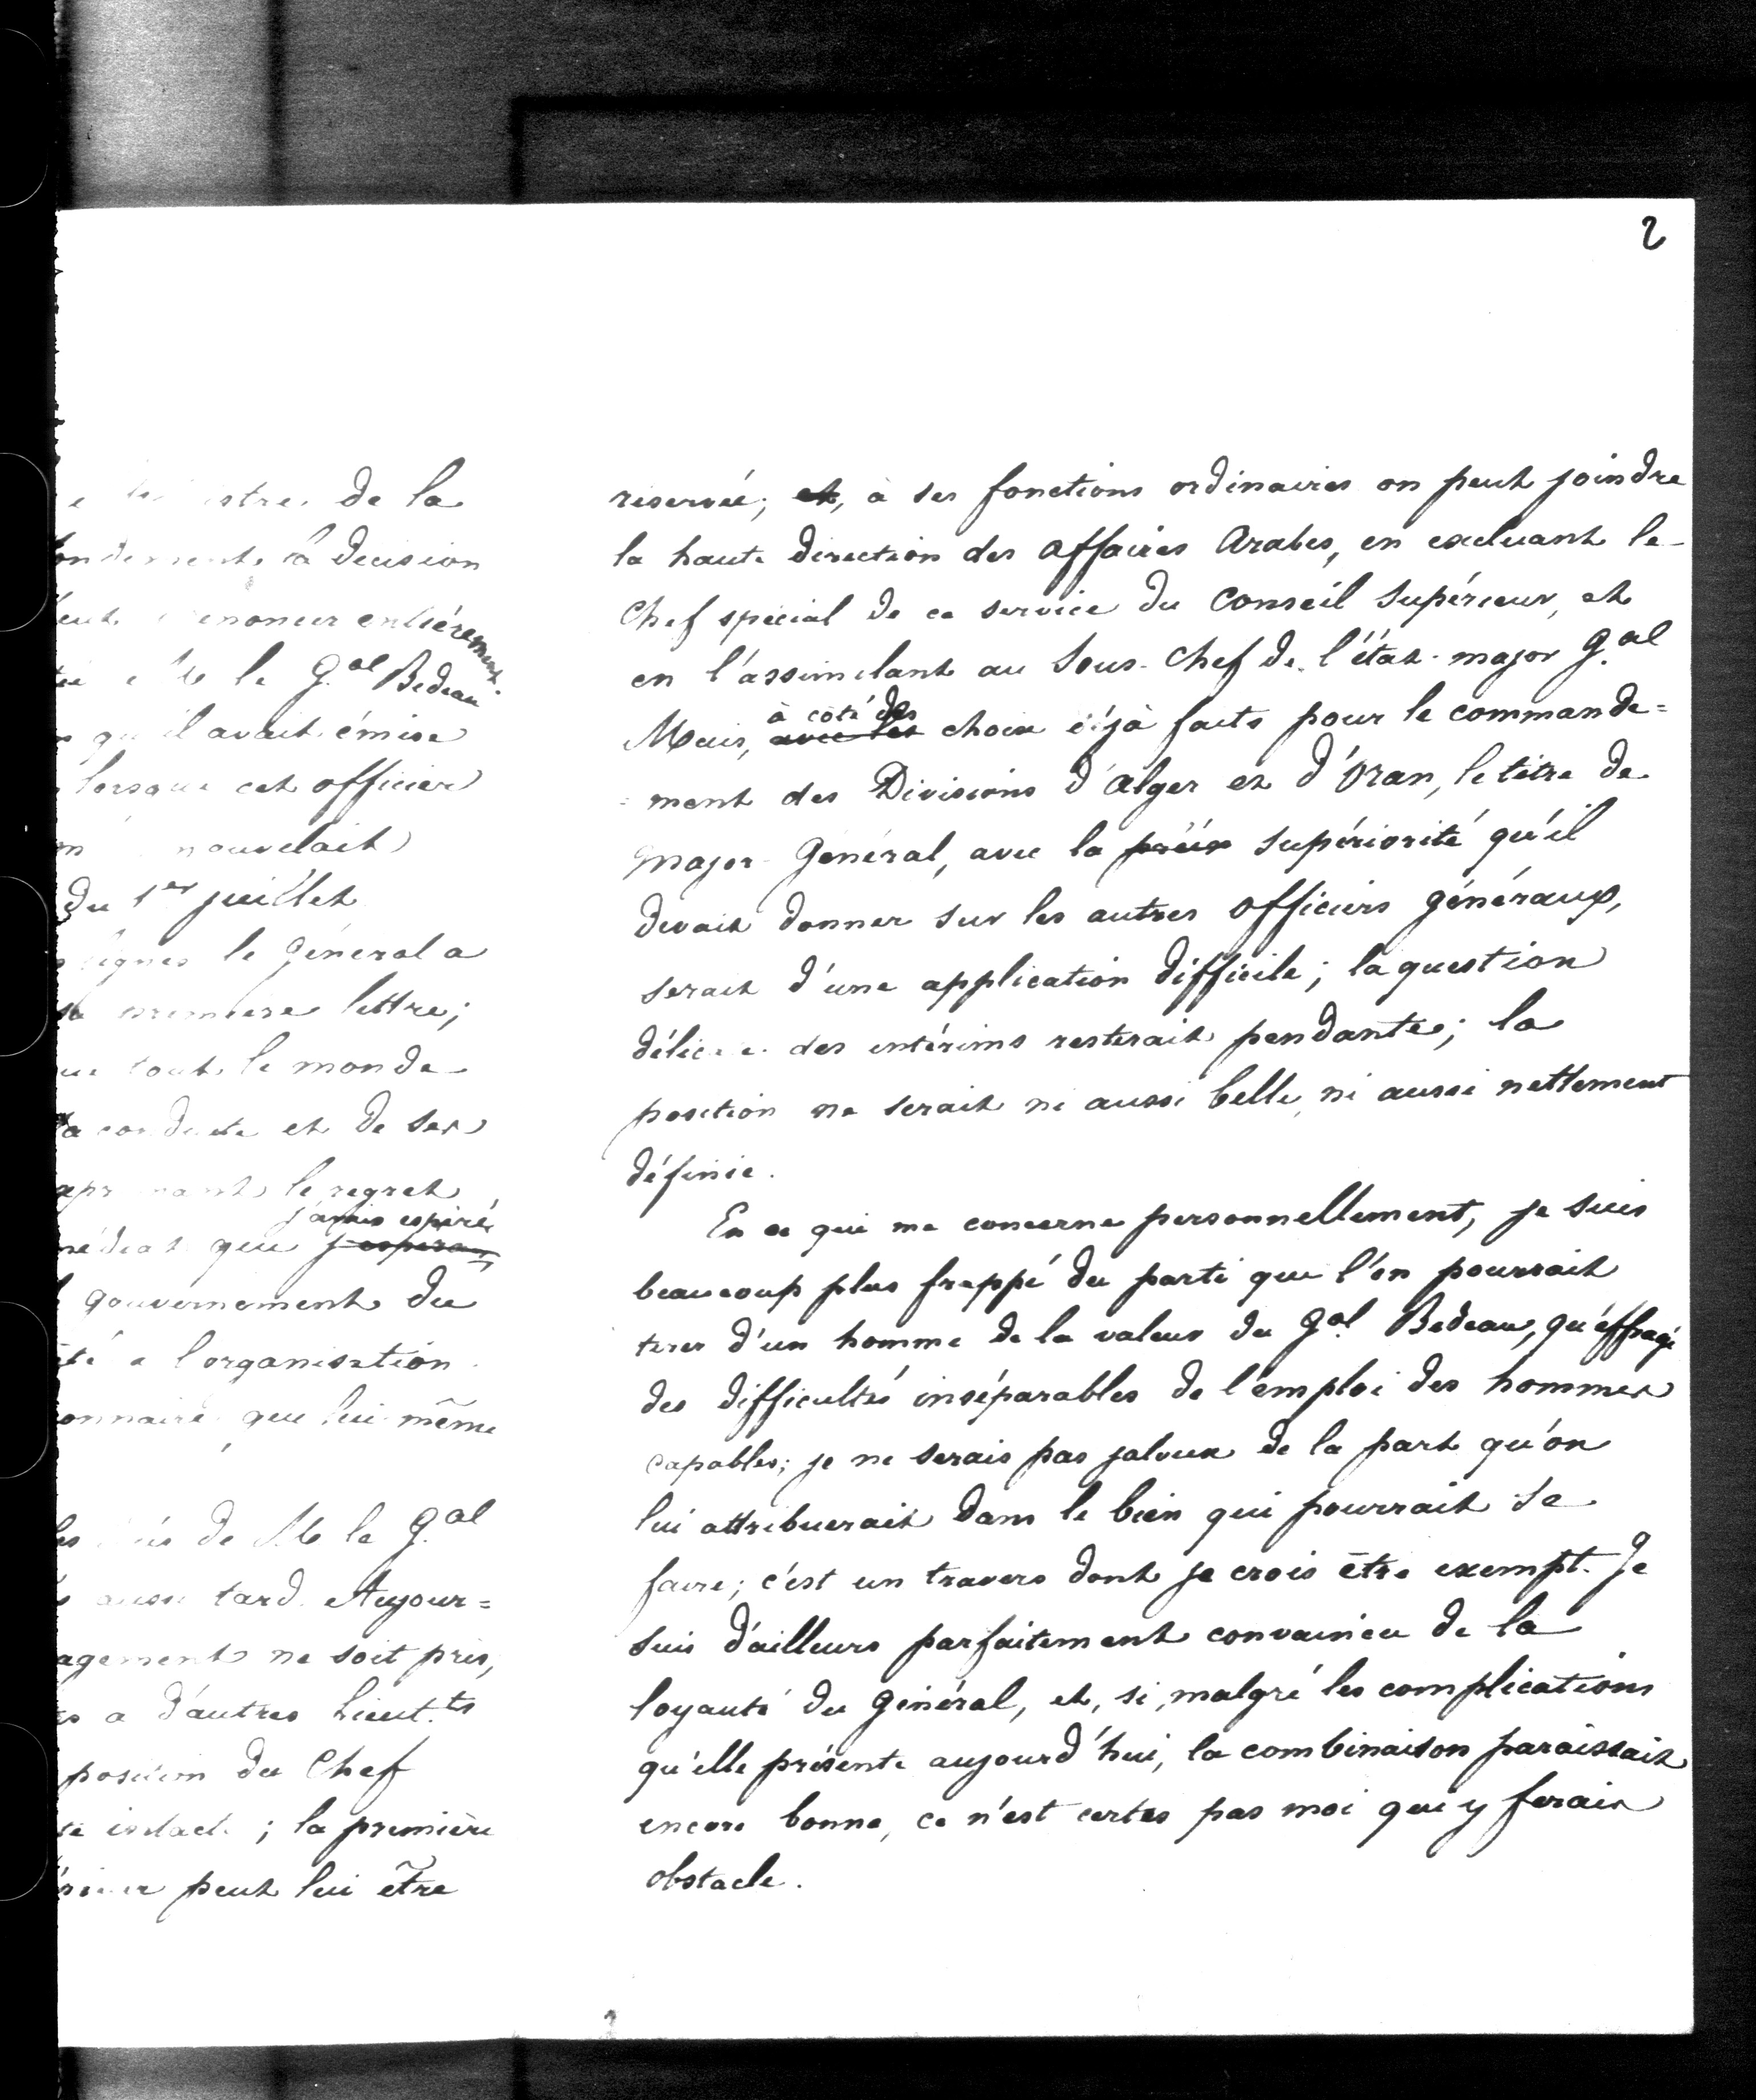 2
de la
la décision
entièrement
le G.al Bedeau
qu'il avait émise
lorsque cet officier
nouvelait
du 1er juillet
lignes le Général a
première lettre;
tout le monde
conduite et de ses
le regret
j'avais espéré
que j'esperais
gouvernement du
a l'organisation
onnaire que lui même
de M le G.al
aussi tard. Aujour=
agement ne soit pris,
a d'autres Lieut.ts
position du Chef
intacte; la première
peut lui être
réservée; et, à ses fonctions ordinaires on peut joindre
la haute direction des affaires Arabes, en excluant le
Chef spécial de ce service du Conseil Supérieur, et
en l'assimilant au Sous-Chef de l'état-major G.al
à côté des
Mais, avec les choix déjà faits pour le commande=
=ment des Divisions d'Alger et d'Oran, le titre de
Major-Général, avec la supériorité qu'il
devait donner sur les autres officiers généraux,
serait d'une application difficile; la question
délicate des intérims resterait pendante; la
position ne serait ni aussi belle, ni aussi nettement
définie.
En ce qui me concerne personnellement, je suis
beaucoup plus frappé du parti que l'on pourrait
tirer d'un homme de la valeur du G.al Bedeau, qu'éffrayé
des difficultés inséparables de l'emploi des hommes
capables; je ne serais pas jaloux de la part qu'on
lui attribuerait dans le bien qui pourrait se
faire; c'est un travers dont je crois être exempt. Je
suis d'ailleurs parfaitement convaincu de la
loyauté du Général, et, si, malgré les complications
qu'elle présente aujourd'hui, la combinaison paraissait
encore bonne, ce n'est certes pas moi qui y ferais
obstacle.